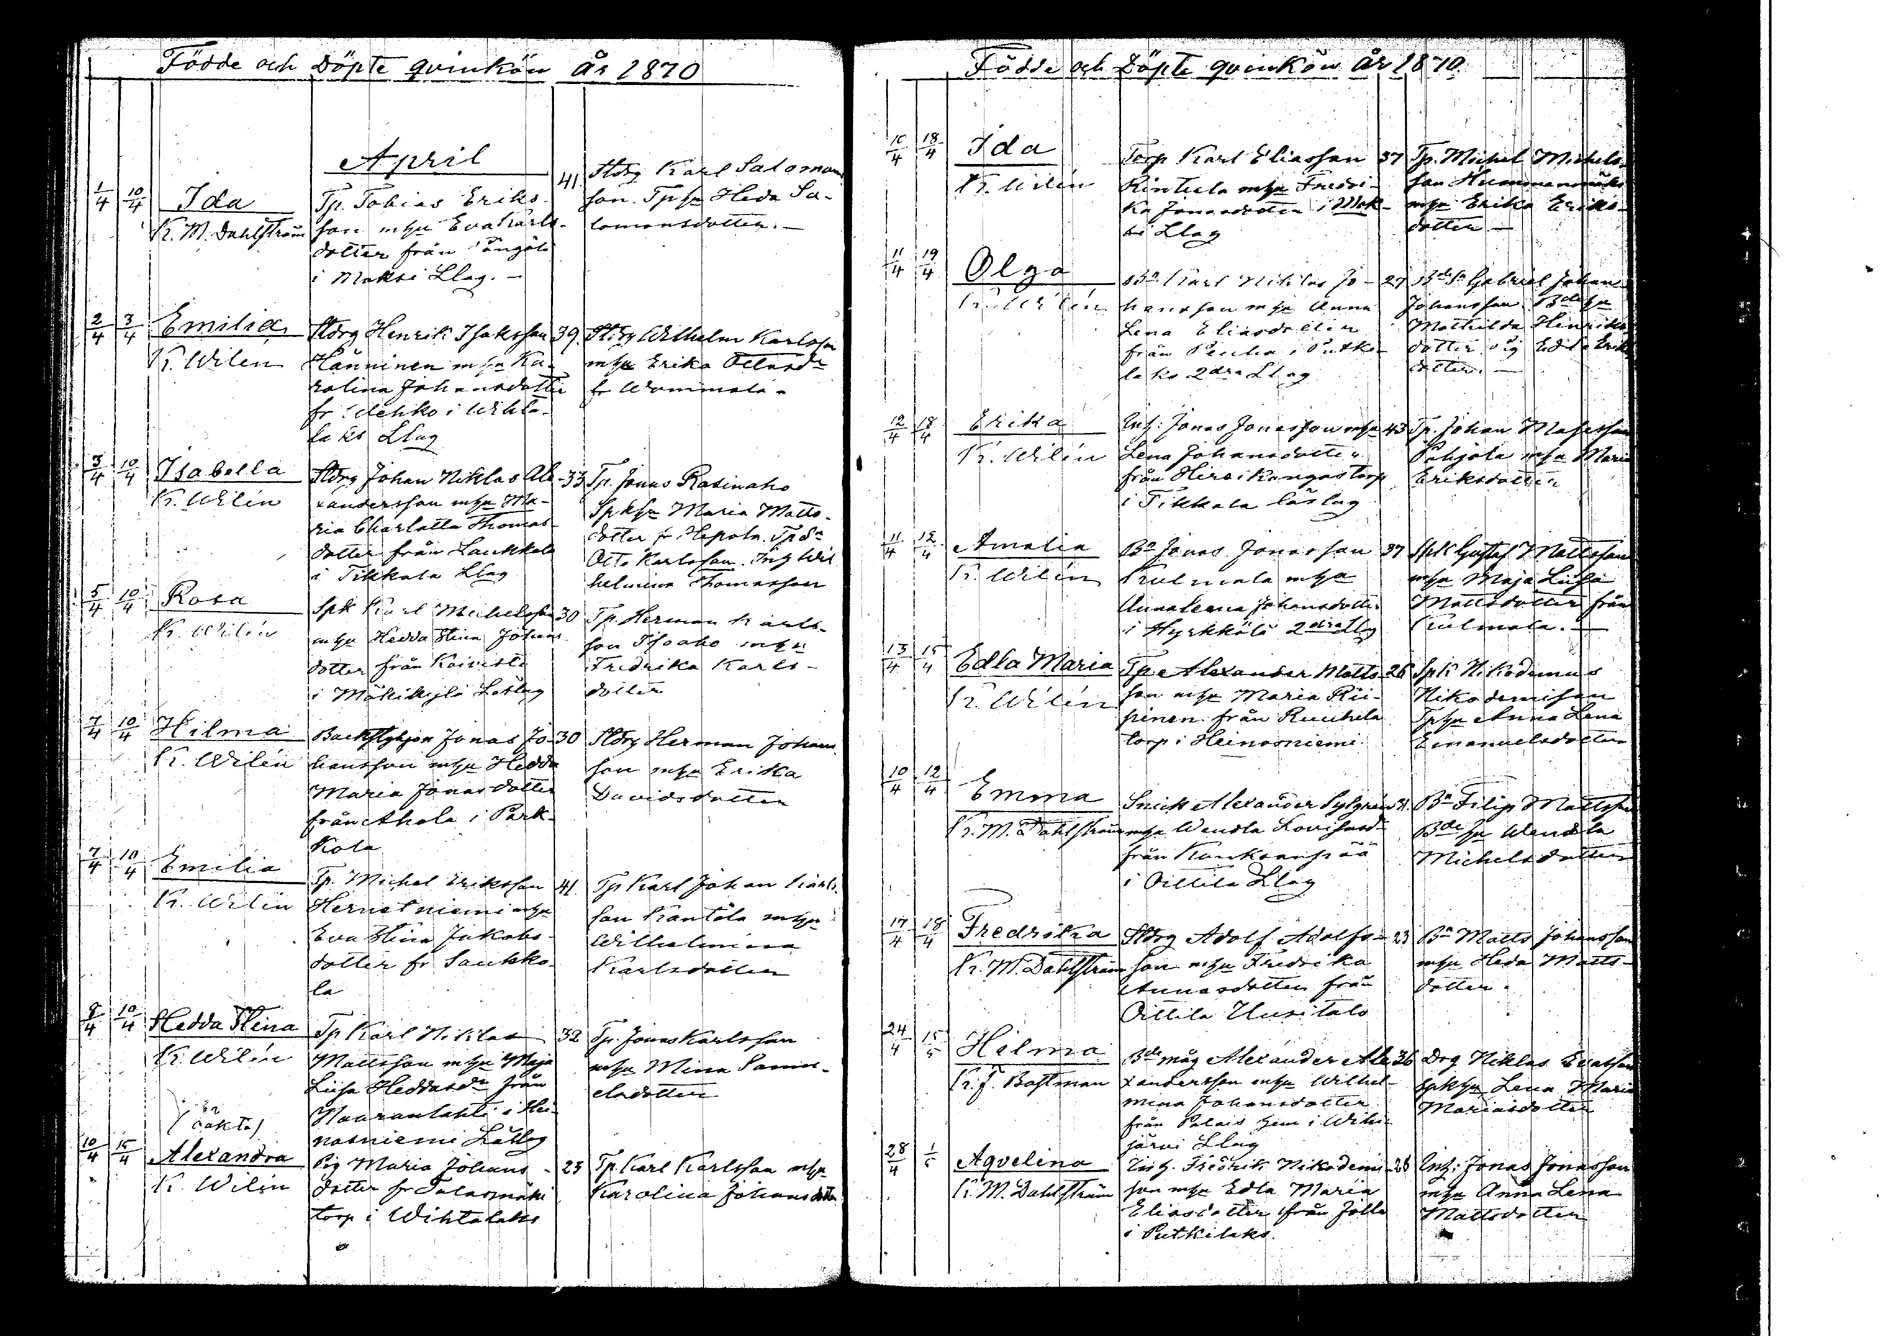 Födde och Döpte qvinkön år 1870
April
1/4 10/4 Ida
K. M. Dahlström
Tp. Tobias Eriks-
son m hu Eva Karls-
dotter från
i Moksi Llag. —
41.
Stdrg Karl Salomons
son. Tp hu Heda Sa-
lomonsdotter. —
2/4 3/4 Emilia
K. Wilén
Stdrg Henrik Isaksson
Hänninen m hu Ka-
rolina Johansdotter
fr i Wihta-
laks Llag
39.
Stdrg Wilhelm Karlsson
m hu Erika Ottasdr
fr Wammala.
3/4 10/4 Isabella
K. Wilén
Stdrg Johan Niklas Ale-
xandersson m hu Ma-
ria Charlotta Thomas-
dotter från Laukkala
i Tikkala Llag
33
Tp. Jonas Rasinaho
Spk hu Maria Matts-
dotter fr Hepola. Tp dr
Otto Karlsson. Inh Wil
helmina Thomasson
5/4 10/4 Rosa
K. Wilén
Spk Karl Michelsson
m hu Hedda Stina Johans
dotter från Koivisto
i Mäkikylä Låslag
30
Tp. Herman Karls-
son Isoaho m hu
Fredrika Karls-
dotter
7/4 10/4 Hilma
K. Wilén
Backstuhjon Jonas Jo-
hansson m hu Hedda
Maria Jonasdotter
från Ahola i Park-
kola
30
Stdrg Herman Johans
son m hu Erika
Davidsdotter
7/4 10/4 Emilia
K. Wilén
Tp. Michel Eriksson
Hernetniemi m hu
Eva Stina Jakobs-
dotter fr Saukko-
la
41.
Tp Karl Johan Karls
son Kantola m hu
Wilhelmina
Karlsdotter
8/4 10/4 Hedda Stina
K. Wilén
Tp Karl Niklas
Mattsson m hu Maja
Lisa Heddasdr från
Haaranlahti i Hei-
nosniemi Låslag
32
Tp. Jonas Karlsson
m hu Mina Samu-
elsdotter
(oäkta)
10/4 15/4 Alexandra
K. Wilén
Pig Maria Johans-
dotter fr Talasmäki
torp i Wihtalaks
23
Tp. Karl Karlsson m hu
Karolina Johansdotter
Födde och Döpte qvinkön år 1870.
10/4 18/4 Ida
K. Wilén
Torp Karl Eliasson
Rintula m hu Fredri-
ka Jonasdotter i Mok-
si Llag
37
Tp. Michel Michels-
son Hummanmäki
m hu Erika Eriks-
dotter —
11/4 19/4 Olga
K. Wilén
Bn Karl Niklas Jo-
hansson m hu Anna
Lena Eliasdotter
från i Putki-
laks 2dra Llag
27
Bde Sn Gabriel Johan
Johansson. Bde hu
Mathilda Henriks
dotter, pig Edla Eriks
dotter. —
12/4 18/4 Erika
K. Wilén
Inh: Jonas Jonasson m hu
Lena Johansdotter
från Hirsikangas torp
i Tikkala låslag
43
Tp. Johan
Pohjola m hu Maria
Eriksdotter
11/4 12/4 Amalia
K. Wilén
Bn Jonas Jonasson
Kulmala m hu
Anna Leena Johansdotter
i Hyrkkölä 2dra Llag
37
Spk Gustaf Mattsson
m hu Maja Lisa
Mattsdotter från
Kulmala. —
13/4 15/4 Edla Maria
K. Wilén
Tp. Alexander Matts-
son m hu Maria Rii-
pinen från Ruuhela
torp i Heinosniemi
26
Spk Nikodemus
Nikodemisson
Tp hu Anna Lena
Emanuelsdotter
10/4 12/4 Emma
K. M. Dahlström
Snick Alexander Sylgrén
m hu Wendla Lovisasdr
från Kouksanpää
i Oittila Llag
31.
Bn Filip Mattsson
Bde hu Wendla
Michelsdotter
17/4 18/4 Fredrika
K. M. Dahlström
Stdrg Adolf Adolfs-
son m hu Fredrika
Annasdotter från
Oittila Uusitalo
23
Bn Matts Johansson
m hu Heda Matts-
dotter.
24/4 15/5 Hilma
K. J. Bastman
Bde måg Alexander Ale
xandersson m hu Wilhel-
mina Johansdotter
från Palais hem i Wihi-
järvi Llag
36
Drg Niklas Evasson
Spk hu Lena Maria
Mariasdotter
28/4 1/5 Aqvelina
K. M. Dahlström
Inh. Fredrik Nikodemi-
son m hu Edla Maria
Eliasdotter från Jolla
i Putkilaks.
26
Inh: Jonas Jonasson
m hu Anna Lena
Mattsdotter